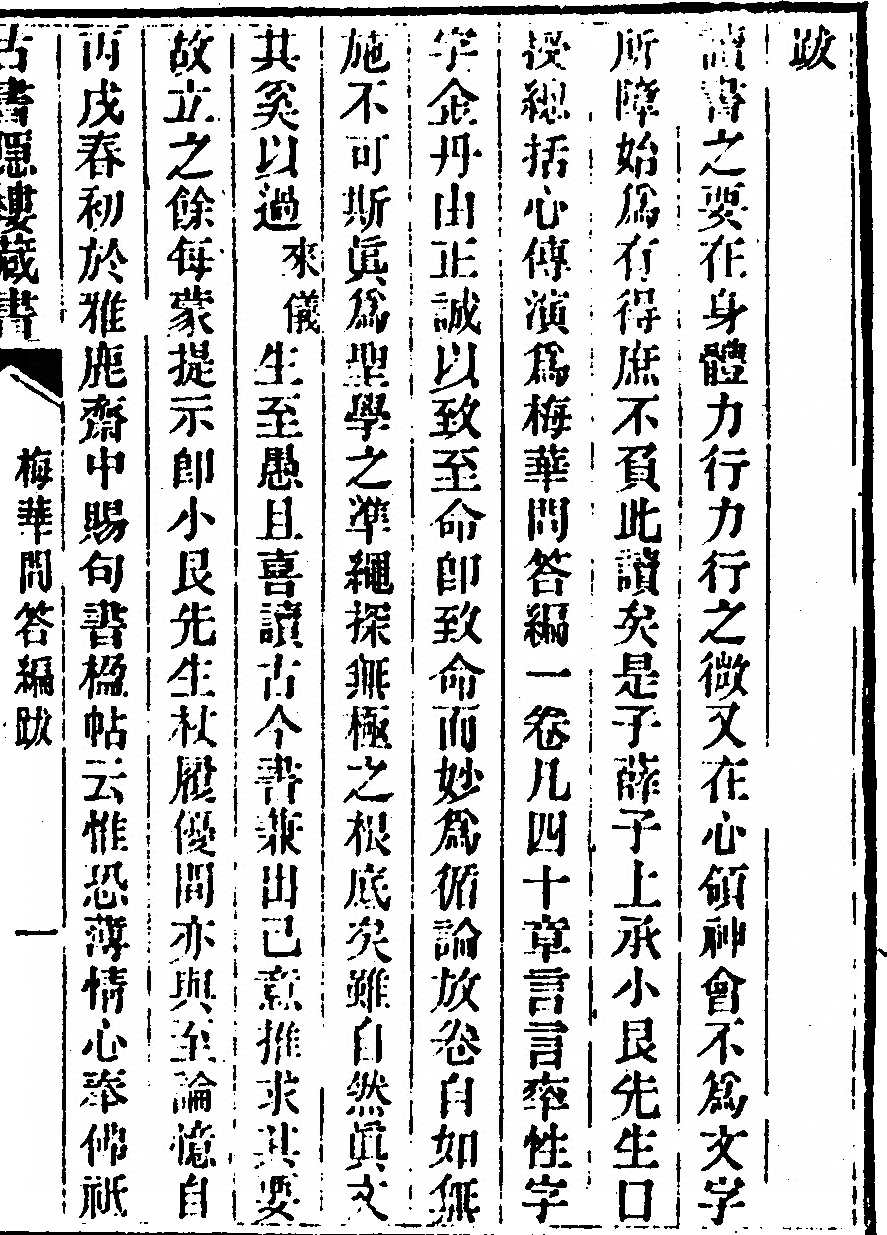 跋
讀書之要在身體力行力行之微又在心領神會不爲文字
所障始爲有得庶不負此讀矣是子薛子上承小艮先生口
授總括心傳演爲梅華問答編一卷凡四十章言言率性字
字金丹由正誠以致至命即致命而妙爲循論放卷自如無
施不可斯眞爲聖學之準繩探無極之根底矣雖自然眞文
其奚以過來儀生至愚且喜讀古今書兼出己意推求其要
故立之餘每蒙提示卽小艮先生杖履優閒亦與至論憶自
丙戌春初於雅鹿齋中賜句書楹帖云惟恐薄情心奉佛祇
古書隱樓藏書
梅華問答編跋
一